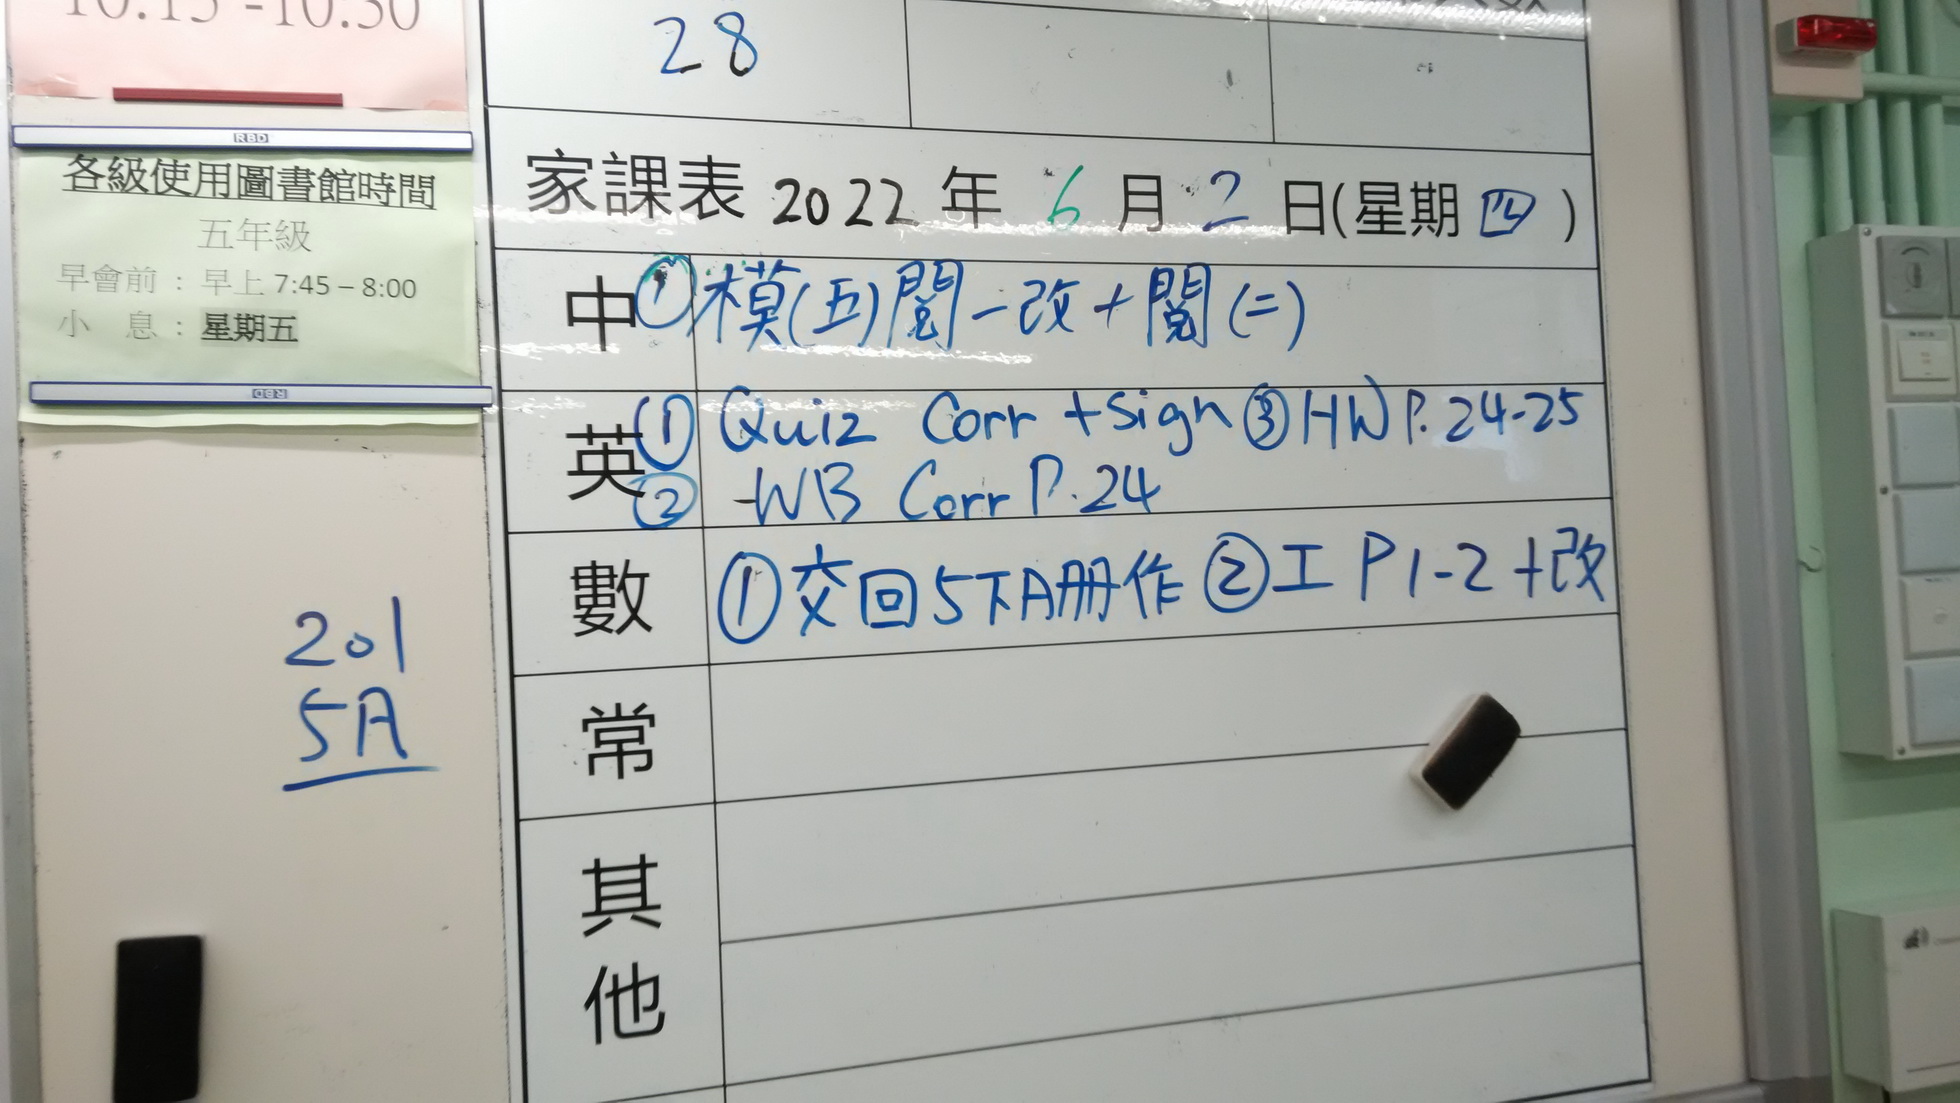 10:15 -10:30
RBD
各級使用圖書館時間
五年級
早會前 : 早上 7:45 – 8:00
小 息 : 星期五
RBD
201
5A
28
家課表 2022 年 6 月 2 日(星期 四)
中 ① 模(五)閱一改+閱(二)
英 ① Quiz Corr +Sign ③ HW P.24-25
② -WB Corr P.24
數 ① 交回5下A冊作 ② 工 P1-2 +改
常
其
他